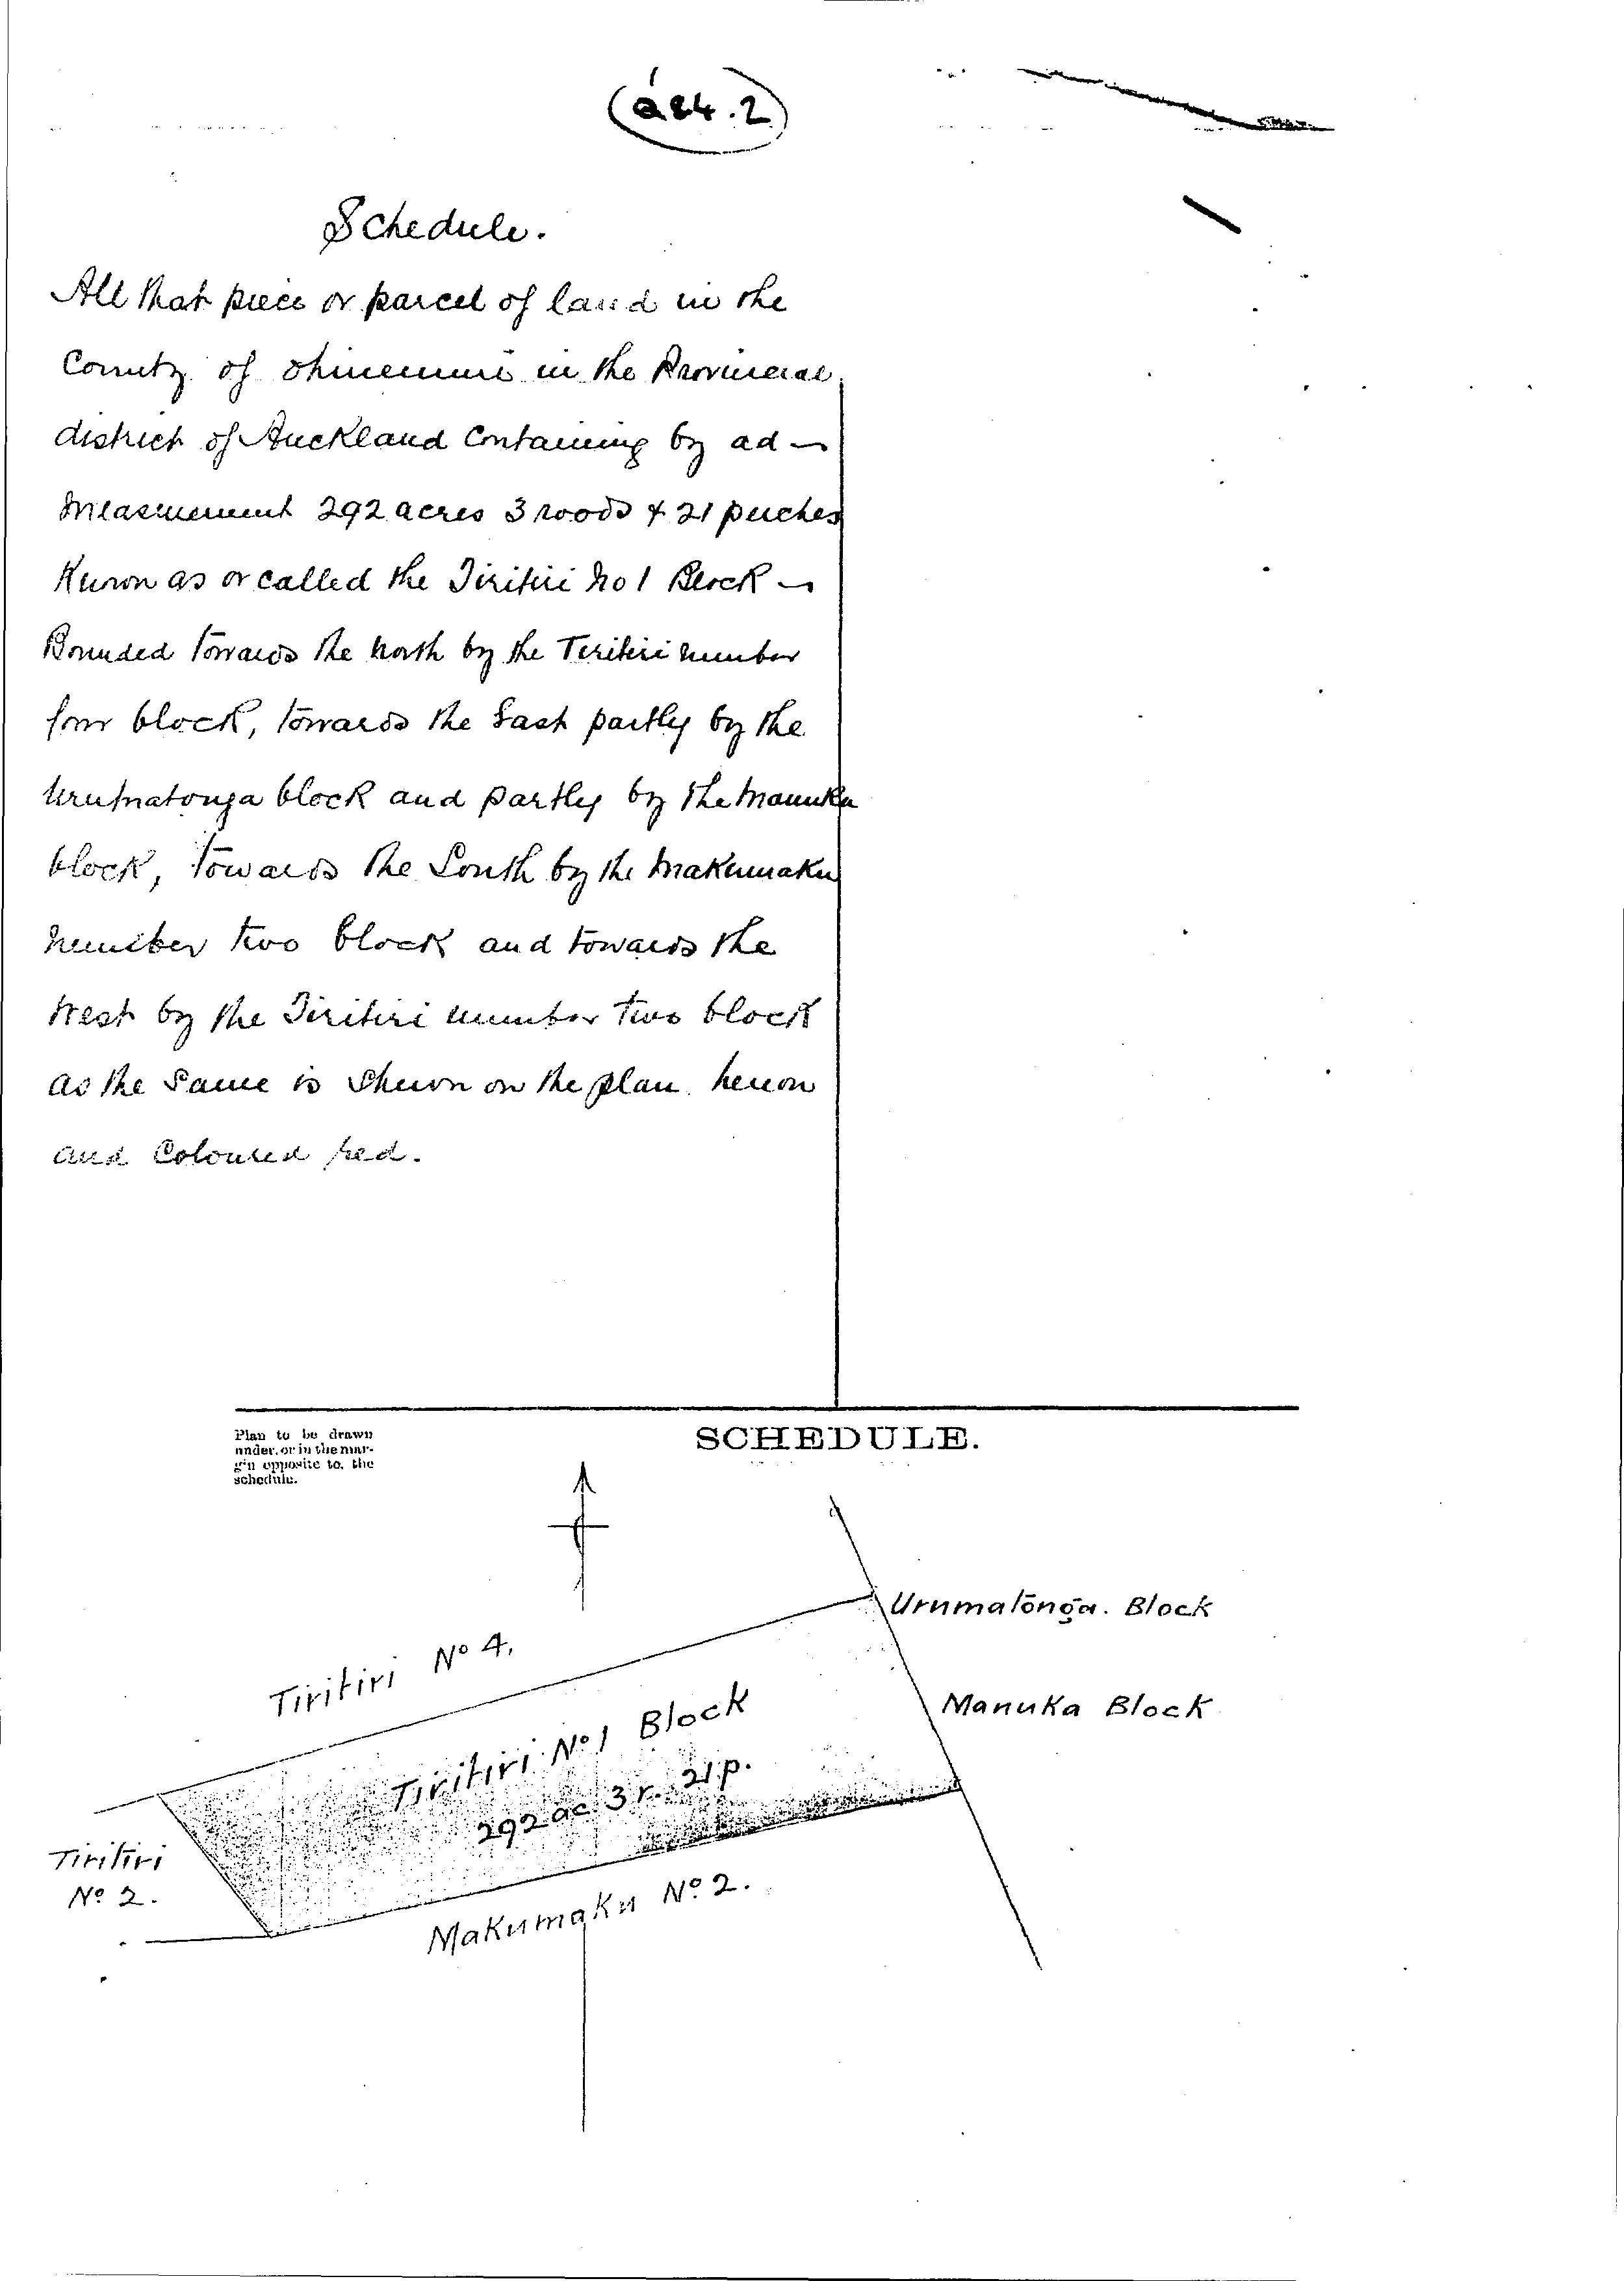 a24.2
Schedule.
All that piece or parcel of land in the
County of Ohinemuri in the Provincial
district of Auckland Containing by ad-
measurement 292 acres 3 roods & 21 perches
Known as or called the Tiritiri No 1 Block -
Bounded towards the North by the Tiritiri number
four block, towards the East partly by the
Urumatonga block and partly by the Manuka
block, towards the South by the Makumaku
number two block and towards the
West by the Tiritiri number two block
as the same is shewn on the plan hereon
and Coloured red.
Plan to be drawn
under, or in the mar-
gin opposite to, the
schedule.
SCHEDULE.
Urumatonga. Block
Tiritiri No 4.
Manuka Block
Tiritiri No 1 Block
292 ac. 3 r. 21 p.
Tiritiri
No 2.
Makumaku No 2.